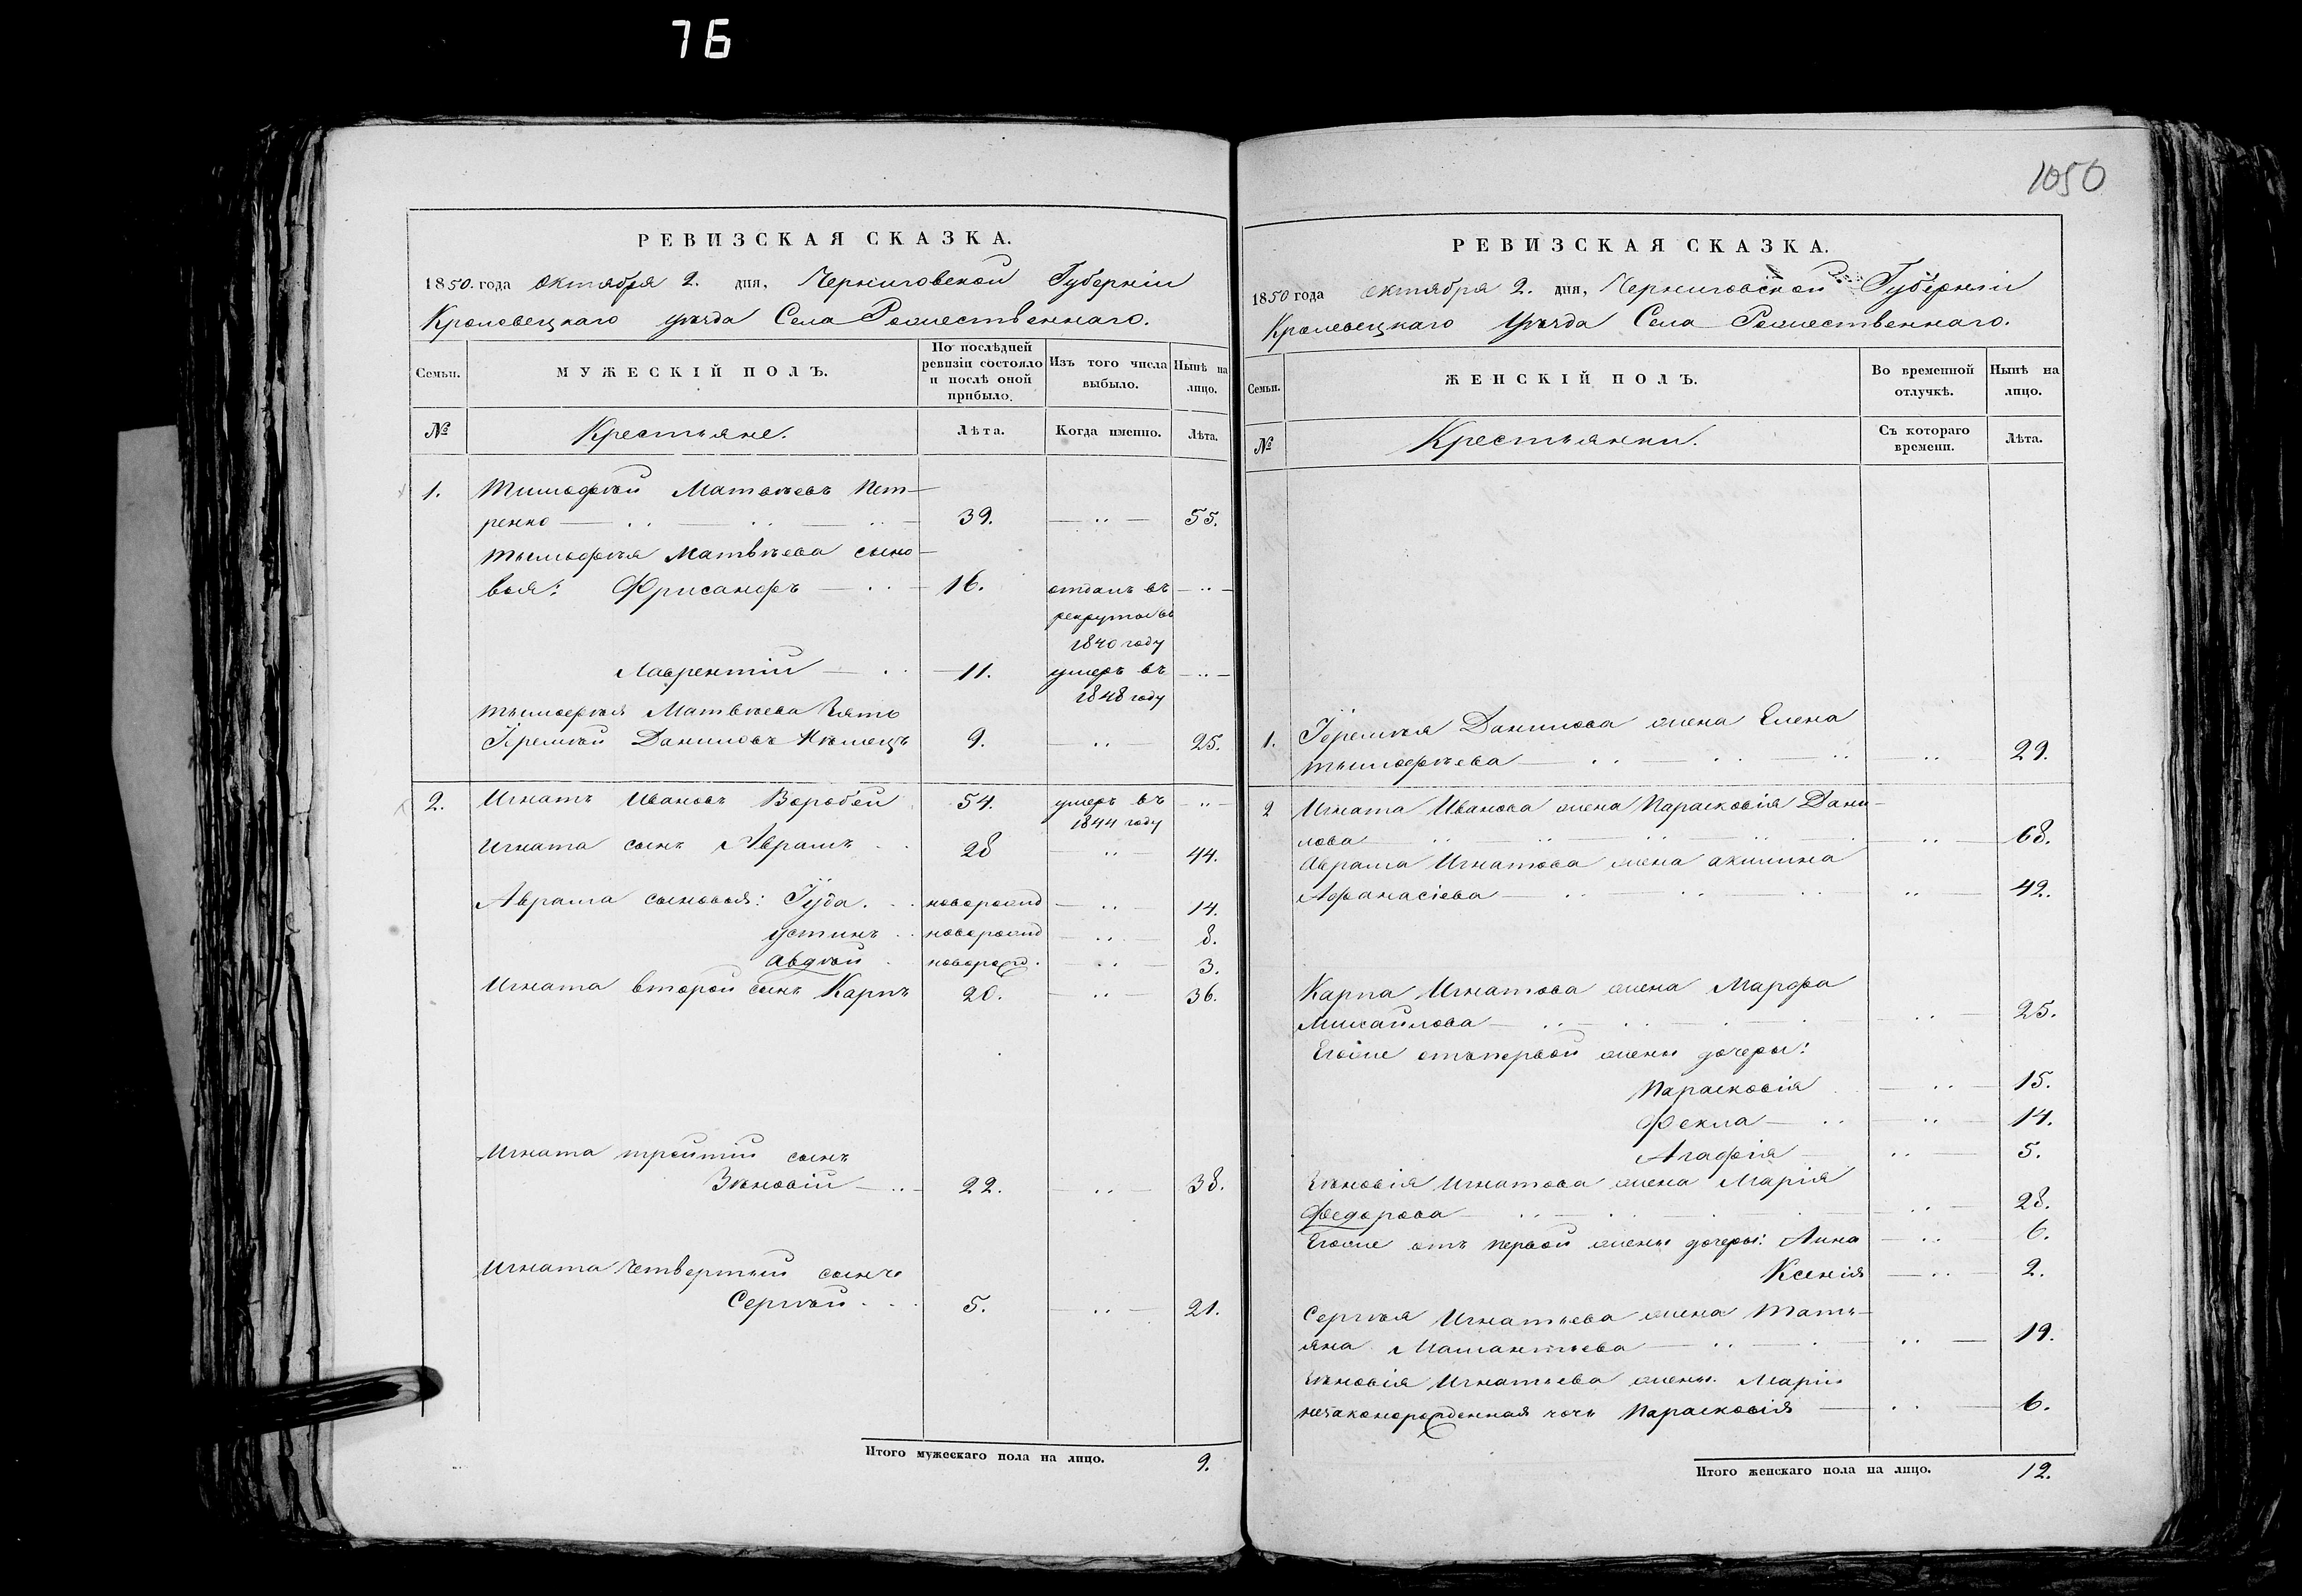 76
1050
РЕВИЗСКАЯ СКАЗКА.
1850. года Октября 2. дня, Черниговской Губерніи
Кролевецкаго уѣзда Села Рожественнаго.
Семьи.
МУЖЕСКІЙ ПОЛЪ.
По послѣдней ревизіи состояло и послѣ оной прибыло.
Изъ того числа выбыло.
Нынѣ на лицо.
№
Крестьяне.
Лѣта.
Когда именно.
Лѣта.
1. Тимофѣй Матвѣевъ Пет-
ренко 39. 55.
Тимофѣя Матвѣева сыно-
вья: Фрисанфъ 16. отданъ въ
рекруты въ
1840 году
Лаврентій 11. умеръ въ
1848 году
Тимофѣя Матвѣева Зять
Іеремѣй Даниловъ Нѣмецъ 9. 25.
2. Игнатъ Ивановъ Воробей 54. умеръ въ
1844 году
Игната сынъ Аврамъ 28 44.
Аврама сыновья: Іуда. новорожд 14.
Устинъ новорожд 8.
Авдѣй новорожд. 3.
Игната второй сынъ Карпъ 20. 36.
Игната третій сынъ
Зѣновій 22. 38.
Игната Четвертый сынъ
Сергѣй 5. 21.
Итого мужескаго пола на лицо. 9.
РЕВИЗСКАЯ СКАЗКА.
1850 года Октября 2. дня, Черниговской Губерніи
Кролевецкаго Уѣзда Села Рожественнаго.
Семьи.
ЖЕНСКІЙ ПОЛЪ.
Во временной отлучкѣ.
Нынѣ на лицо.
№
Крестьянки.
Съ котораго времени.
Лѣта.
1. Іеремѣя Данилова жена Елена
Тимофѣева 29.
2 Игната Иванова жена Парасковія Дани-
лова 68.
Аврама Игнатова жена Акилина
Афанасіева 42.
Карпа Игнатова жена Марфа
Михайлова 25.
Егоже отъ первой жены дочеры:
Парасковія 15.
Фекла 14.
Агафія 5.
Зѣновія Игнатова жена Марія
Федорова 28.
Егоже отъ первой жены дочеры: Анна 6.
Ксенія 2.
Сергѣя Игнатьева жена Тать-
яна 19.
Зѣновія Игнатьева жены Маріи
незаконорожденная дочь Парасковія 6.
Итого женскаго пола на лицо. 12.